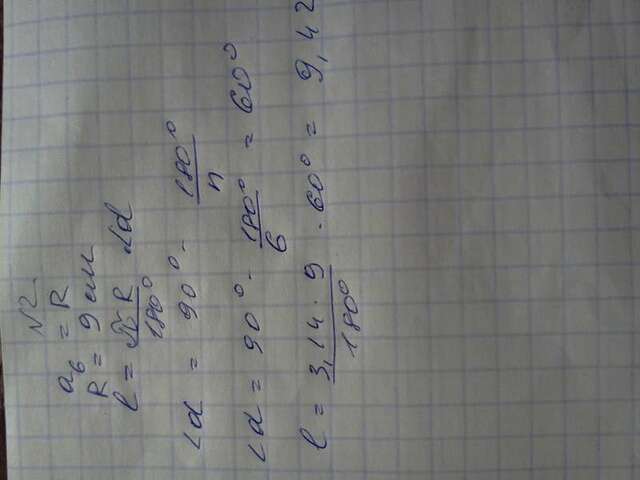 №2
a₆ = R
R = 9 см
l = πR/180° ∠α
∠α = 90° - 180°/n
∠α = 90° - 180°/6 = 60°
l = 3,14 · 9/180° · 60° = 9,42